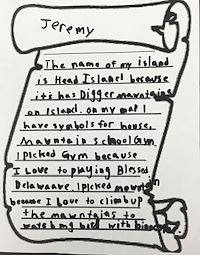 Jeremy
The name of my island
is Head Island because
it's has Digger mawntains
on Island. on my map I
have symbols for house,
Mawntain school Gym
I Picked Gym because
I Love to playing Blessed
Delawaave. I picked mowntain
because I Love to climb up
the mawntains to
with